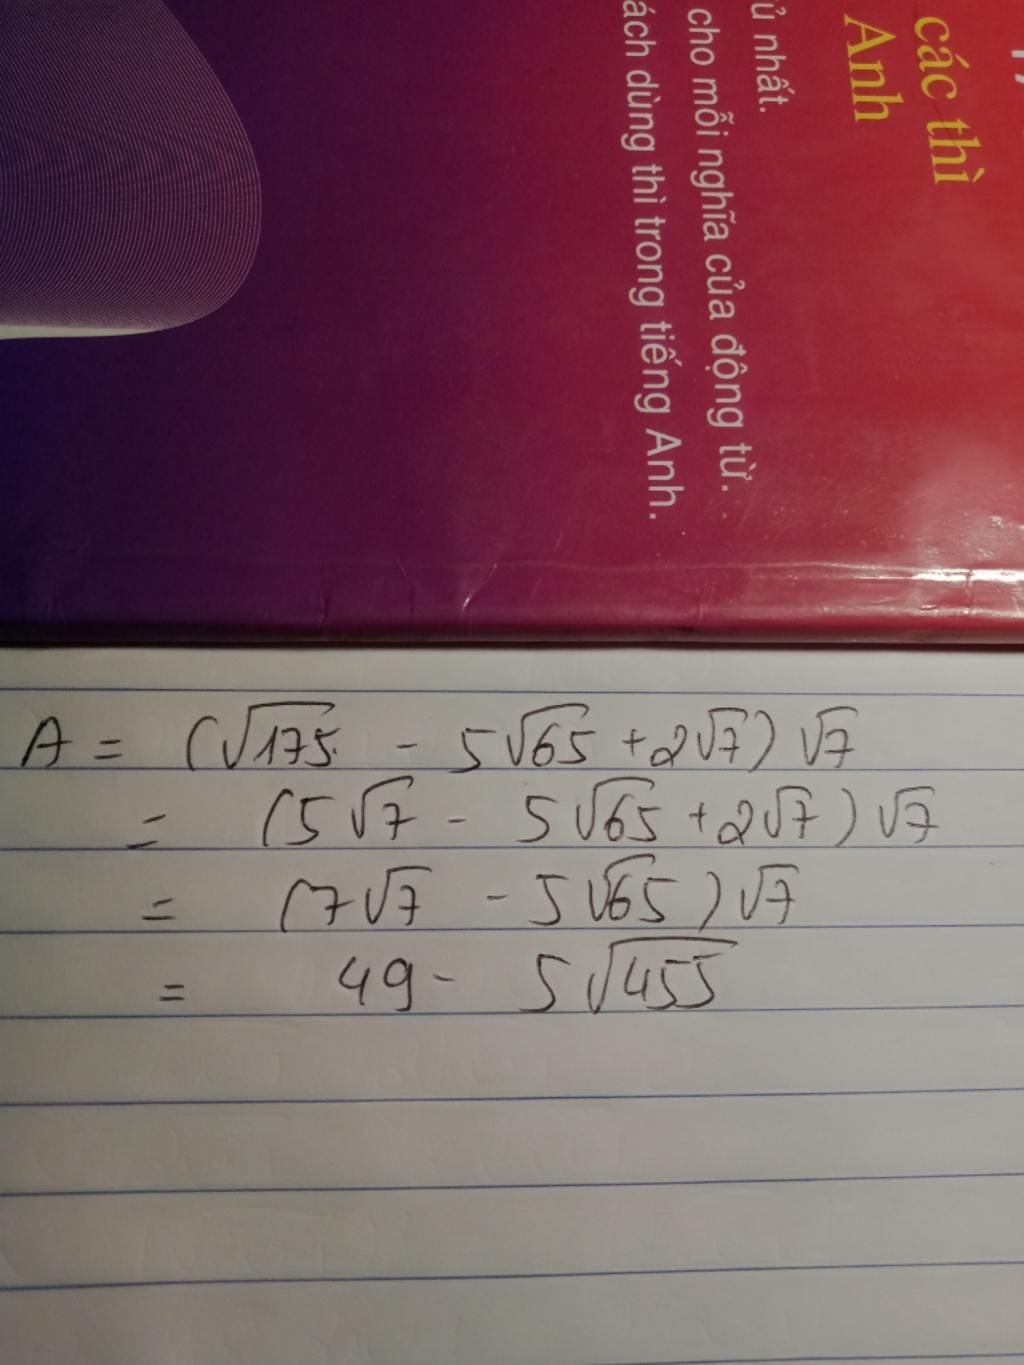 các thì
Anh
ủ nhất.
cho mỗi nghĩa của động từ.
ách dùng thì trong tiếng Anh.
A = (√175 - 5√65 + 2√7) √7
= (5√7 - 5√65 + 2√7) √7
= (7√7 - 5√65) √7
= 49 - 5√455